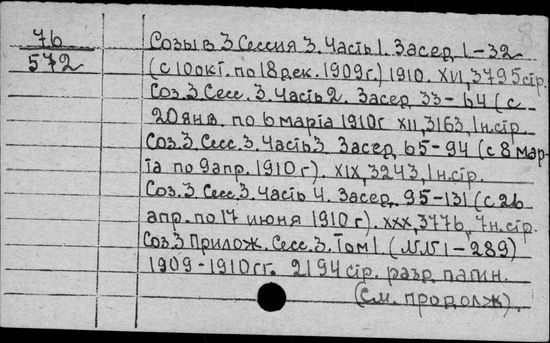 76
572
Созыв 3 Сессия 3. Часть 1. Засед 1-32
(с 10 окт. по 18 дек. 1909 г.) 1910. XVI, 3795 стр.
Соз. 3. Сесс. 3. Часть 2. Засед 33-64 (с
20 янв. по 6 марта 1910 г XII, 3163, 1 н. стр.
Соз. 3. Сесс. 3. Часть 3. Засед 65-94 (с 8 мар-
та по 9 апр. 1910 г). XIX, 3243, 1 н. стр.
Соз. 3. Сесс. 3. Часть 4. Засед. 95-131 (с 26
апр. по 17 июня 1910 г). XXX, 3776, 7 н. стр.
Соз. 3 Прилож. Сесс. 3. Том 1. (NN 1-289)
1909-1910 гг. 2194 стр. разд. пагин.
(см. продолж).